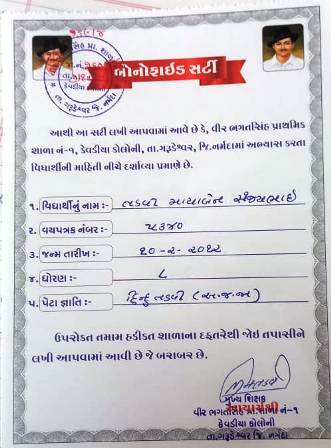 બોનોફાઇડ સર્ટી
આથી આ સર્ટી લખી આપવામાં આવે છે કે, વીર ભગતસિંહ પ્રાથમિક
શાળા નં-૧, કેવડીયા કોલોની, તા.ગરૂડેશ્વર, જિ.નર્મદામાં અભ્યાસ કરતા
વિધાર્થીની માહિતી નીચે દર્શાવ્યા પ્રમાણે છે.
૧. વિધાર્થીનું નામ :- તડવી માયાબેન સંજયભાઇ
૨. વયપત્રક નંબર :- ૫૩૪૦
૩. જન્મ તારીખ :- ૧૦-૨-૨૦૧૨
૪. ધોરણ :- ૮
૫. પેટા જ્ઞાતિ :- હિન્દુ તડવી (અ.જ.જા)
ઉપરોકત તમામ હકીકત શાળાના દફતરેથી જોઇ તપાસીને
લખી આપવામાં આવી છે જે બરાબર છે.
મુખ્ય શિક્ષક
વીર ભગતસિંહ પ્રા.શાળા નં-૧
કેવડીયા કોલોની
તા.ગરૂડેશ્વર જિ. નર્મદા